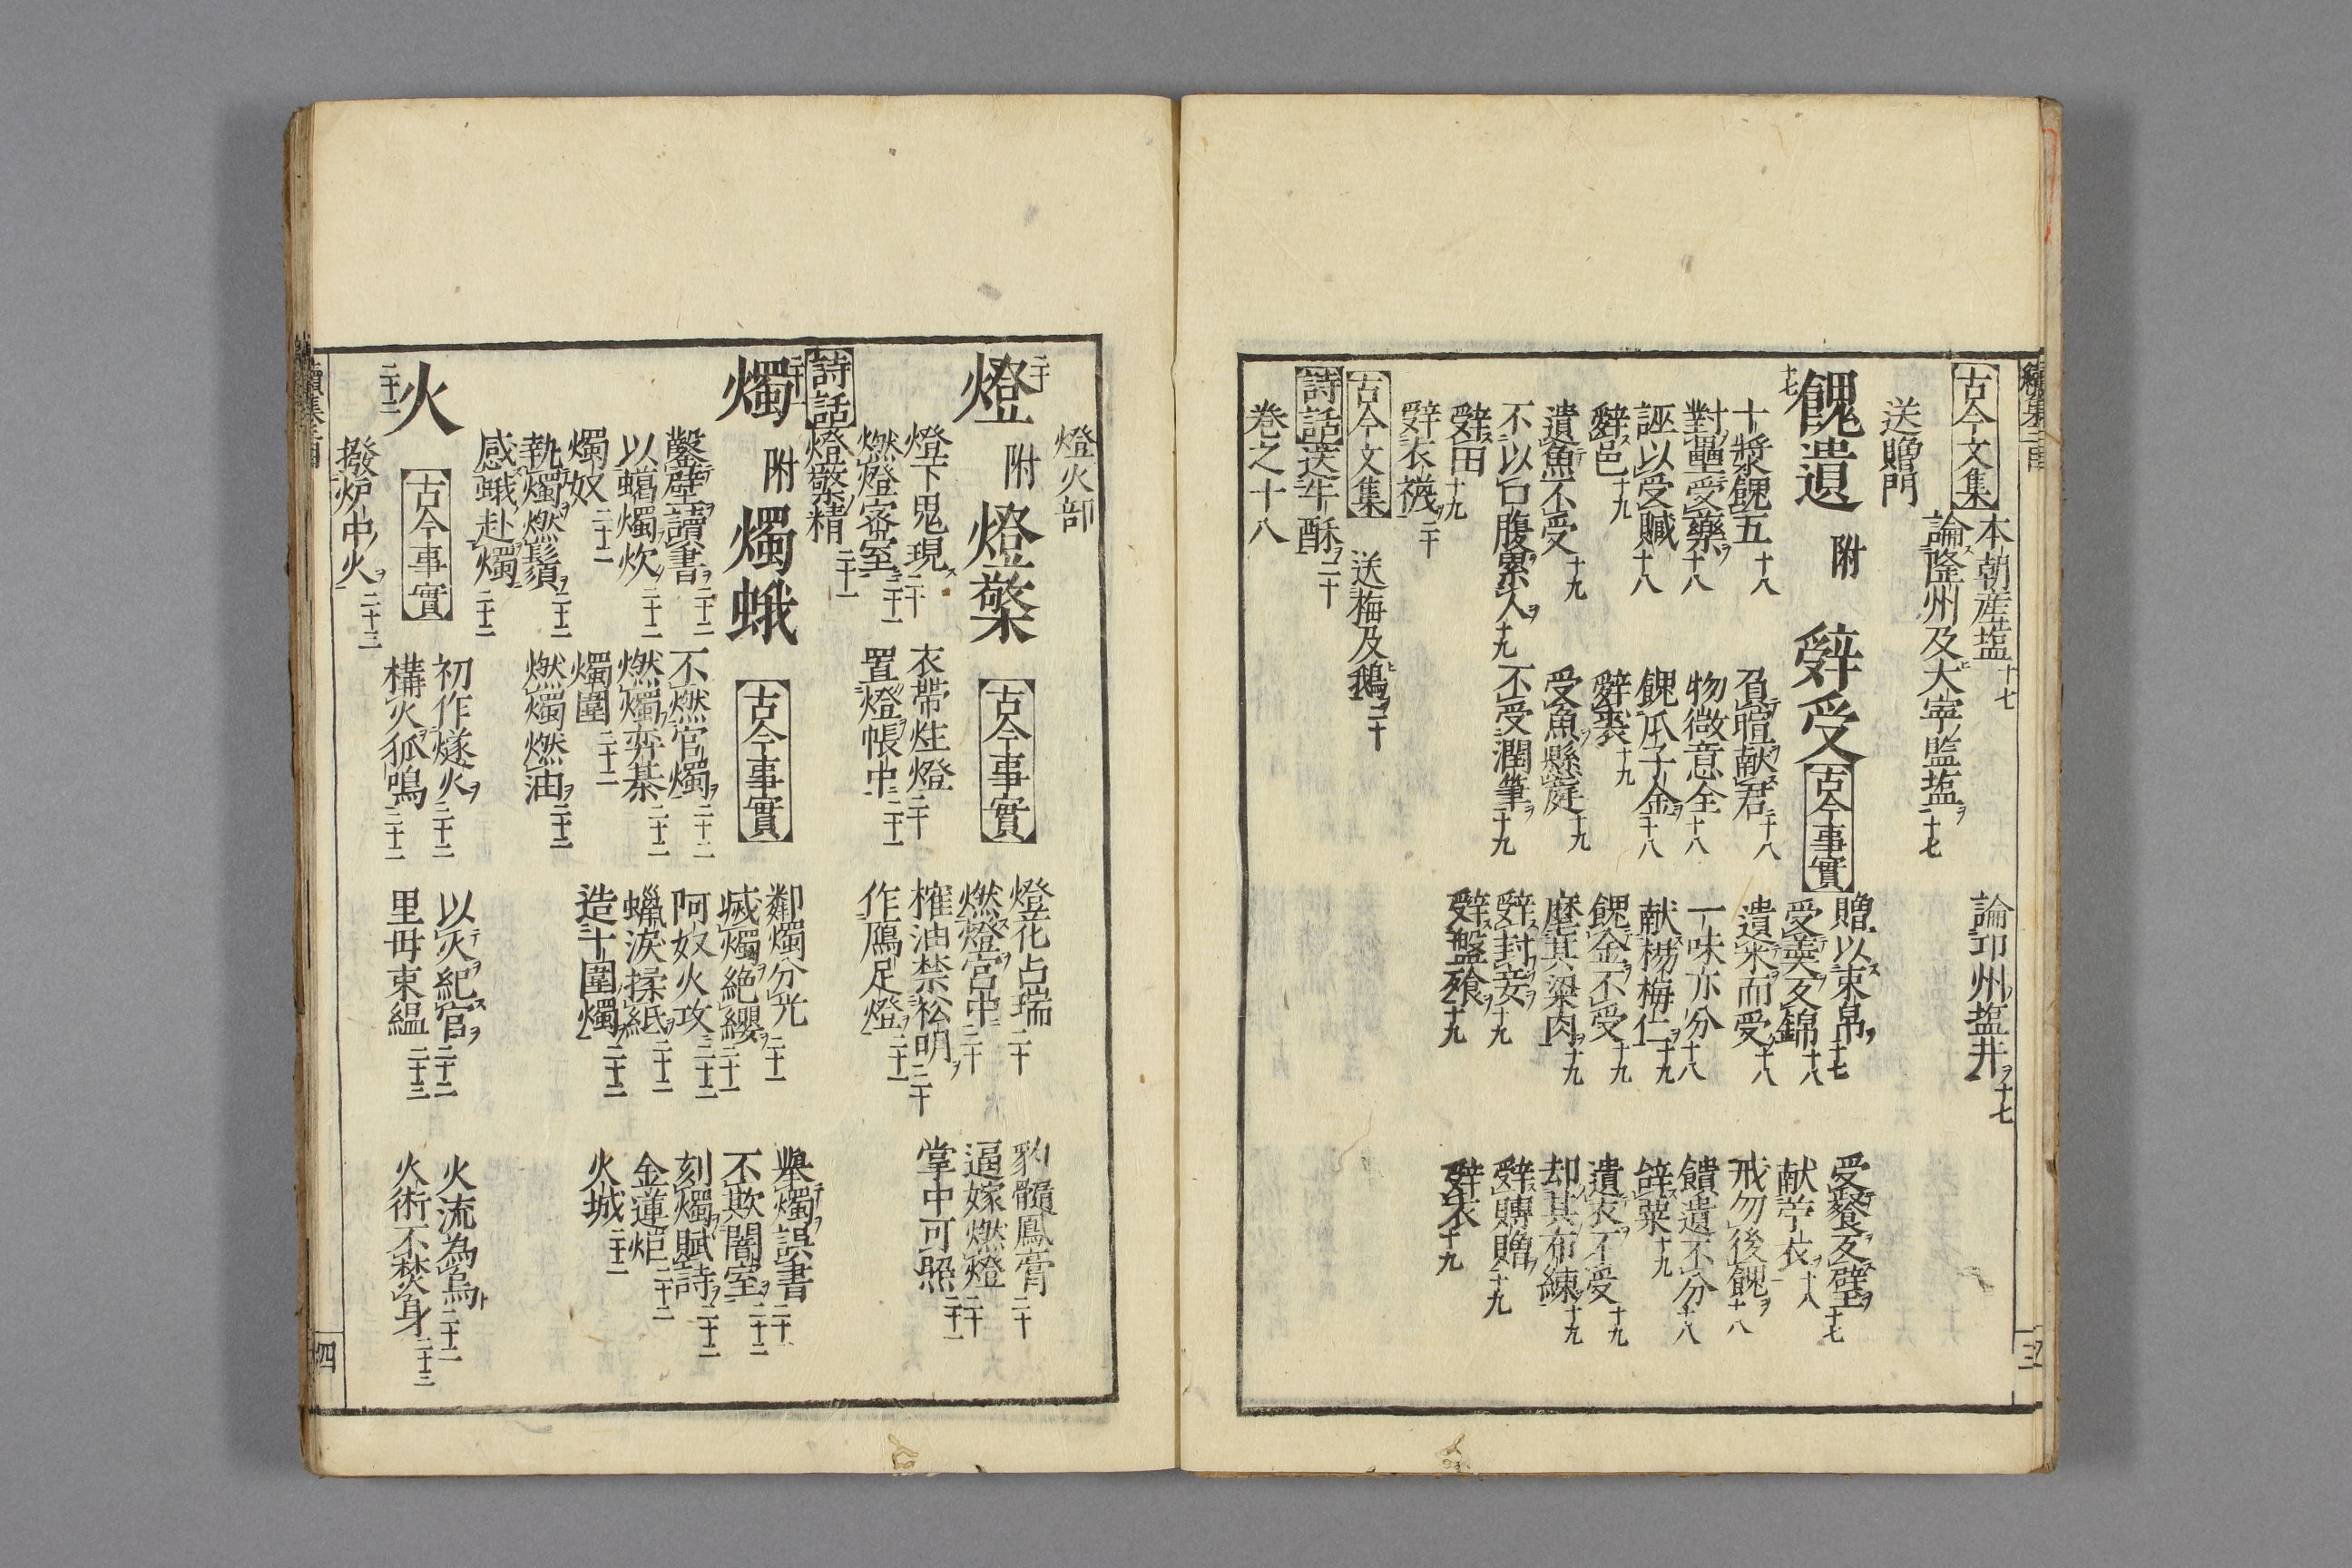 古今文集 本朝産塩十七 論卭州塩井ヲ十七
論ス隆州及ヒ大寧監塩ヲ十七
送贈門
十七 餽遺 附 辤受 古今事實 贈以ス束帛ヲ十七 受テ餐ヲ反ス璧ヲ十七
受テ羮ヲ反ス錦十八 献苧衣ヲ十八
十漿餽五十八 負暄献君二十八 遺米而受十八 戒勿後餽ヲ十八
對壘受藥ヲ十八 物微意全十八 一味亦分十八 饋遺不分十八
誣以受贓十八 餽瓜子金ヲ十八 献楊梅仁ヲ十九 辞ス粟十九
辤ス邑十九 辤裘十九 餽金ヲ不受十九 遺衣不受十九
遺魚不受十九 受魚懸庭十九 麾其粱肉ヲ十九 却其布練十九
不以口腹累人ヲ十九 不受潤筆ヲ十九 辤ス封妾ヲ十九 辤ス賻贈ヲ十九
辤ス田十九 辤ス盤飱ヲ十九 辤衣十九
辤衣襪ヲ二十
古今文集 送梅及ヒ鵝ヲ二十
詩話 送牛酥ヲ二十
巻之十八
三
燈火部
二十 燈 附 燈檠 古今事實 燈花占瑞二十 豹髓鳳膏二十
燃ス燈ヲ宮中二十 逼嫁燃燈二十
燈下鬼現ス二十 衣帶炷燈二十 榷油禁松明ヲ二十 掌中可照二十一
燃燈密室二十一 置燈ヲ帳中二十一 作鴈足燈ヲ二十一
詩話 燈檠精二十一
二十一 燭 附 燭蛾 古今事實 鄰燭分光二十一 舉テ燭ヲ誤書二十一
滅燭ヲ絶纓ヲ二十一 不欺闇室ヲ二十二
鑿テ壁ヲ讀書ヲ二十二 不燃官燭ヲ二十二 阿奴火攻二十二 刻燭ヲ賦詩ヲ二十二
以蠟燭炊二十二 燃燭ヲ弈棊二十二 蠟涙揉紙ヲ二十二 金蓮炬二十二
燭奴二十二 燭圍二十二 造十圍燭ヲ二十二 火城二十二
執燭ヲ燃鬚ヲ二十二 燃燭燃油ヲ二十二
感蛾赴燭二十二
二十二 火 古今事實 初作燧火ヲ二十二 以テ火ヲ紀ス官ヲ二十二 火流為烏ト二十二
構火ヲ狐鳴二十二 里母束縕二十三 火術不焚身二十三
撥炉中火ヲ二十三
四